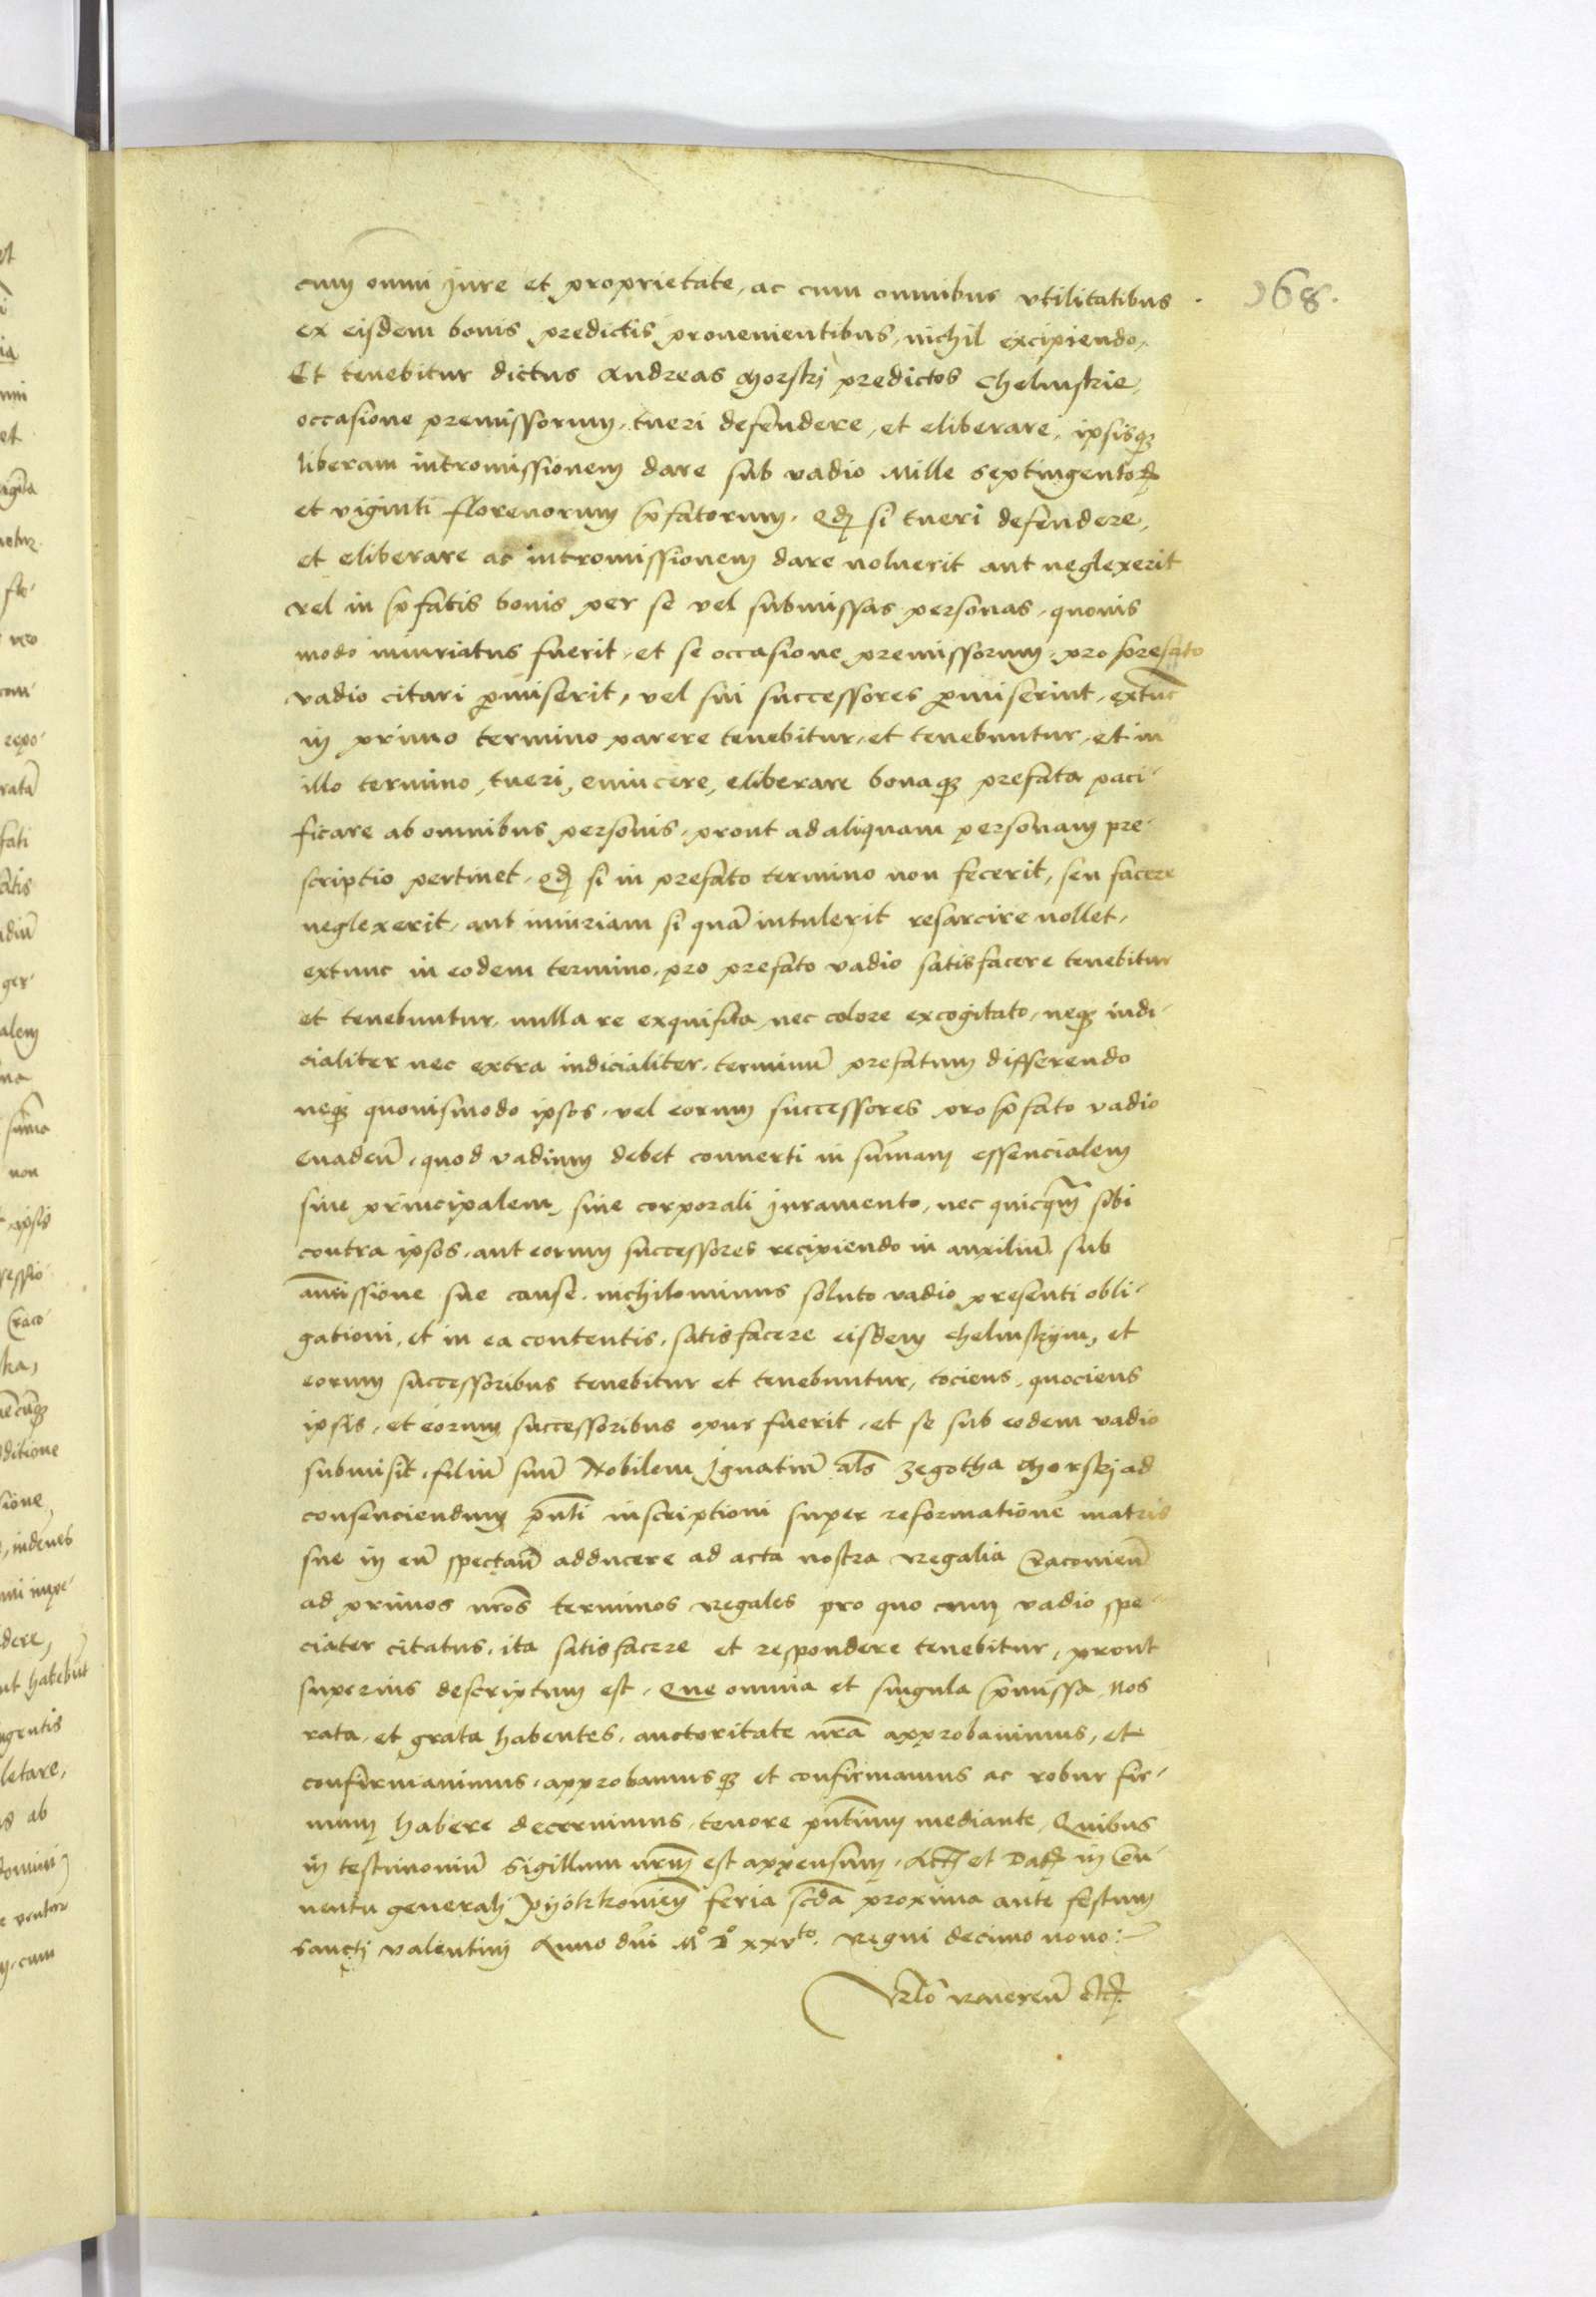 168.
cum omni Jure et proprietate, ac cum omnibus vtilitatibus
ex eisdem bonis predictis prouenientibus, nichil excipiendo,
Et tenebitur dictus Andreas Morskj predictos Chelmskie,
occasione premissorum, tueri defendere, et eliberare, ipsisqȝ
liberam intromissionem dare sub vadio Mille septingentoꝝ
et viginti florenorum p̱fatorum. Qdȝ si tueri defendere,
et eliberare ac intromissionem dare noluerit aut neglexerit
vel in p̱fatis bonis per se vel submissas personas, quouis
modo iniuriatus fuerit, et se occasione premissorum, pro prefato
vadio citari p̱miserit, vel sui successores p̱miserint, extūc
in primo termino parere tenebitur, et tenebuntur, et in
illo termino, tueri, euincere, eliberare bonaqȝ prefata paci-
ficare ab omnibus personis, prout ad aliquam personam pre-
scriptio pertinet, qdȝ si in prefato termino non fecerit, seu facere
neglexerit, aut iniuriam si quā intulerit resarcire nollet,
extunc in eodem termino, pro prefato vadio satisfacere tenebitur
et tenebuntur, nulla re exquisita, nec colore excogitato, neqȝ iudi-
cialiter nec extra iudicialiter, terminū prefatum differendo
neqȝ quouismodo ipsos, vel eorum successores pro p̱fato vadio
euadeñ, quod vadium debet conuerti in sum̄am essencialem
siue principalem, sine corporali Juramento, nec quicq̄m sibi
contra ipsos, aut eorum successores recipiendo in auxiliū sub
am̄issione sue cause, nichilominus soluto vadio presenti obli-
gationi, et in ea contentis, satisfacere eisdem Chelmskym, et
eorum successoribus tenebitur et tenebuntur, tociens, quociens
ipsis, et eorum successoribus opus fuerit, et se sub eodem vadio
submisit, filiū suū Nobilem Ignatiū als̄ Zegotha Morskj ad
consenciendum pn̄ti inscriptioni super reformatione matris
sue in eū spectañ adducere ad acta nostra Regalia Cracouieñ
ad primos nr̄os terminos Regales pro quo cum vadio spe-
cialiter citatus, ita satisfacere et respondere tenebitur, prout
superius descriptum est, Que omnia et singula p̱missa, Nos
rata, et grata habentes, auctoritate nr̄a approbauimus, et
confirmauimus, approbamusqȝ et confirmamus ac robur fir-
mum habere decernimus, tenore pn̄tium mediante, Quibus
in testimoniū sigillum nr̄m est appensum. Actꝝ et Datꝝ in Con-
uentu generalj Pyotrkouieñ feria scd̄a proxima ante festum
sanctj valentinj Anno dn̄i M° D° xxvto. Regni decimo nono: